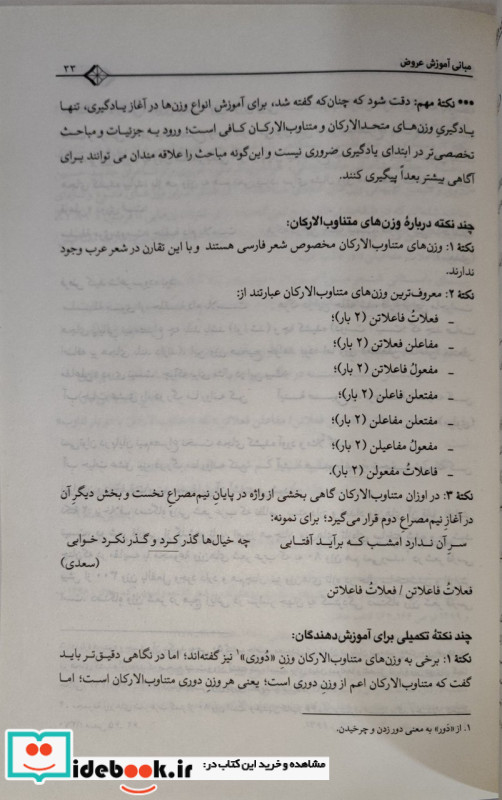 مبانی آموزش عروض
۳۳
*** نکتهٔ مهم: دقت شود که چنان‌که گفته شد، برای آموزش انواع وزن‌ها در آغاز یادگیری، تنها
یادگیریِ وزن‌های متحدالارکان و متناوب‌الارکان کافی است؛ ورود به جزئیات و مباحث
تخصصی‌تر در ابتدای یادگیری ضروری نیست و این‌گونه مباحث را علاقه مندان می توانند برای
آگاهی بیشتر بعداً پیگیری کنند.
چند نکته دربارهٔ وزن‌های متناوب‌الارکان:
نکتهٔ ۱: وزن‌های متناوب‌الارکان مخصوص شعر فارسی هستند و با این تقارن در شعر عرب وجود
ندارند.
نکتهٔ ۲: معروف‌ترین وزن‌های متناوب‌الارکان عبارتند از:
_ فعلاتُ فاعلاتن (۲ بار)؛
_ مفاعلن فعلاتن (۲ بار)؛
_ مفعولُ فاعلاتن (۲ بار)؛
_ مفتعلن فاعلن (۲ بار)؛
_ مفتعلن مفاعلن (۲ بار)؛
_ مفعولُ مفاعیلن (۲ بار)؛
_ فاعلاتُ مفعولن (۲ بار).
نکتهٔ ۳: در اوزان متناوب‌الارکان گاهی بخشی از واژه در پایانِ نیم‌مصراع نخست و بخش دیگرِ آن
در آغازِ نیم‌مصراعِ دوم قرار می‌گیرد؛ برای نمونه:
سرِ آن ندارد امشب که برآید آفتابی چه خیال‌ها گذر کرد و گذر نکرد خوابی
(سعدی)
فعلاتُ فاعلاتن / فعلاتُ فاعلاتن
چند نکتهٔ تکمیلی برای آموزش‌دهندگان:
نکتهٔ ۱: برخی به وزن‌های متناوب‌الارکان وزنِ «دُوری»۱ نیز گفته‌اند؛ اما در نگاهی دقیق‌تر باید
گفت که متناوب‌الارکان اعم از وزن دوری است؛ یعنی هر وزنِ دوری متناوب‌الارکان است؛ اما
۱. از «دَور» به معنی دور زدن و چرخیدن.
مشاهده و خرید این کتاب در:
idebook.ir